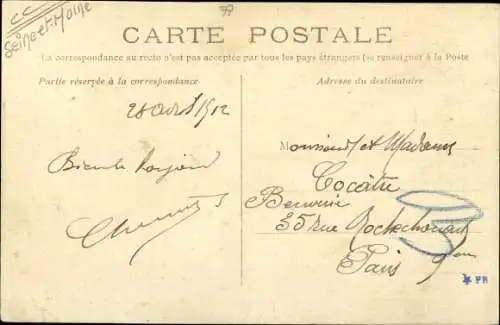 77
CC
Seine et Marne
CARTE POSTALE
La correspondance au recto n'est pas acceptée par tous les pays étrangers (se renseigner à la Poste
Partie réservée à la correspondance
Adresse du destinataire
28 août 1912
Monsieur et Madame
Cocâtre
35 rue Rochechouart
Paris
PR